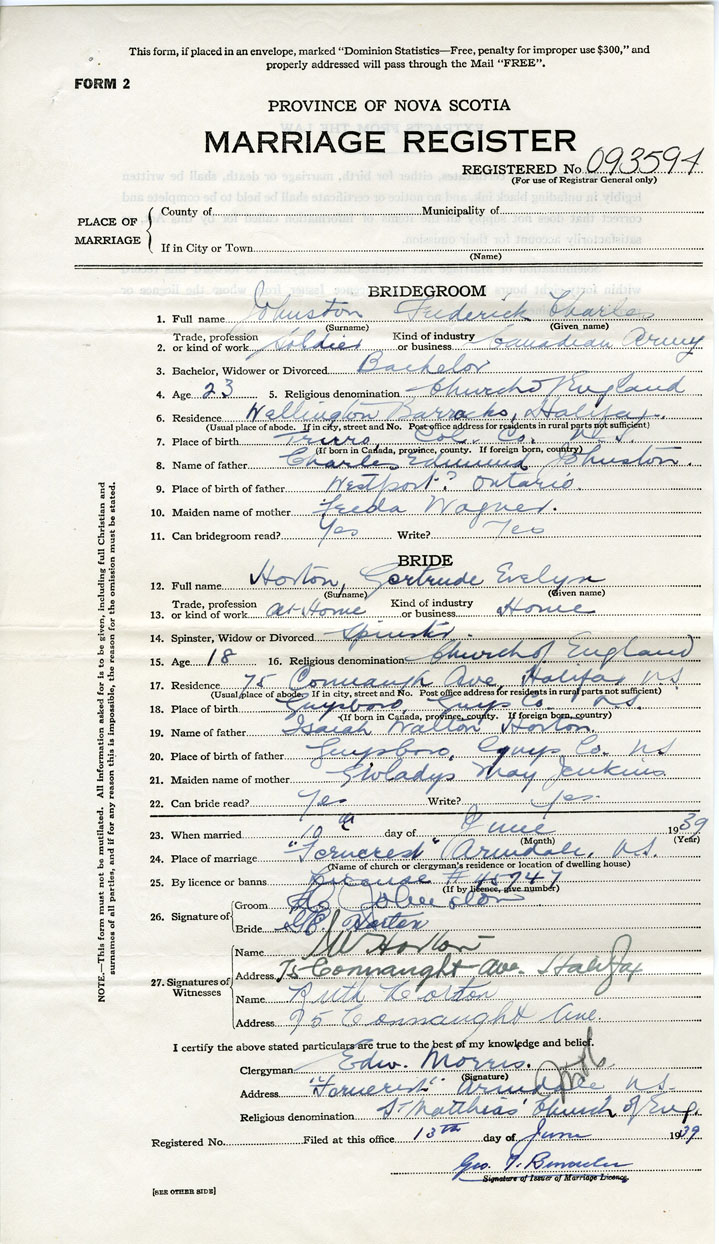 This form, if placed in an envelope, marked "Dominion Statistics—Free, penalty for improper use $300," and
properly addressed will pass through the Mail "FREE".
FORM 2
PROVINCE OF NOVA SCOTIA
MARRIAGE REGISTER
REGISTERED No. 093594
(For use of Registrar General only)
PLACE OF MARRIAGE
County of Municipality of
If in City or Town
(Name)
BRIDEGROOM
1. Full name Johnston Frederick Charles
(Surname) (Given name)
2. Trade, profession or kind of work Soldier Kind of industry or business Canadian Army
3. Bachelor, Widower or Divorced Bachelor
4. Age 23 5. Religious denomination Church of England
6. Residence Wellington Barracks, Halifax
(Usual place of abode. If in city, street and No. Post office address for residents in rural parts not sufficient)
7. Place of birth Truro, Col. Co. N.S.
(If born in Canada, province, county. If foreign born, country)
8. Name of father Charles Edmund Johnston.
9. Place of birth of father Westport? Ontario.
10. Maiden name of mother Freda Wagner.
11. Can bridegroom read? Yes Write? Yes
BRIDE
12. Full name Horton, Gertrude Evelyn
(Surname) (Given name)
13. Trade, profession or kind of work at Home Kind of industry or business Home
14. Spinster, Widow or Divorced Spinster.
15. Age 18 16. Religious denomination Church of England
17. Residence 75 Connaugh Ave, Halifax N.S
(Usual place of abode. If in city, street and No. Post office address for residents in rural parts not sufficient)
18. Place of birth Guysboro, Guys Co. N.S.
(If born in Canada, province, county. If foreign born, country)
19. Name of father Isaiah Walton Horton.
20. Place of birth of father Guysboro, Guys Co. N.S
21. Maiden name of mother Gwladys May Jenkins
22. Can bride read? Yes Write? yes.
23. When married 10th day of June 1939
(Month) (Year)
24. Place of marriage "Ferncrest" Armdale, N.S.
(Name of church or clergyman's residence or location of dwelling house)
25. By licence or banns License # 45747
(If by licence, give number)
26. Signature of
Groom Johnston
Bride G.E. Horton
27. Signatures of Witnesses
Name Horton
Address 75 Connaught Ave. Halifax
Name Ruth Horton
Address 75 Connaught Ave.
I certify the above stated particulars are true to the best of my knowledge and belief.
Clergyman Edw. Morris.
(Signature)
Address "Ferncrest" Armdale N.S.
Religious denomination St Matthias' Church of Eng.
Registered No. Filed at this office 13th day of June 1939
Geo.
Signature of Issuer of Marriage Licence
[SEE OTHER SIDE]
NOTE.—This form must not be mutilated. All information asked for is to be given, including full Christian and
surnames of all parties, and if for any reason this is impossible, the reason for the omission must be stated.